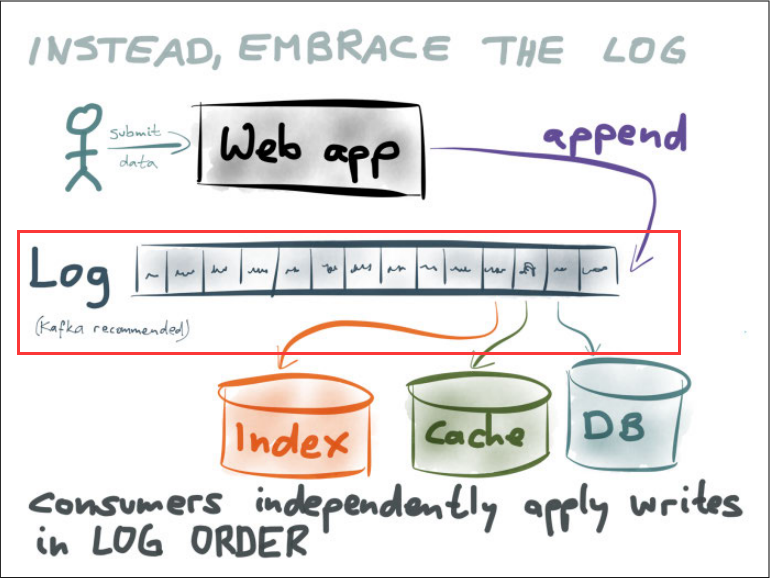 INSTEAD, EMBRACE THE LOG
submit
data
Web app
append
Log
(Kafka recommended)
Index
Cache
DB
consumers independently apply writes
in LOG ORDER